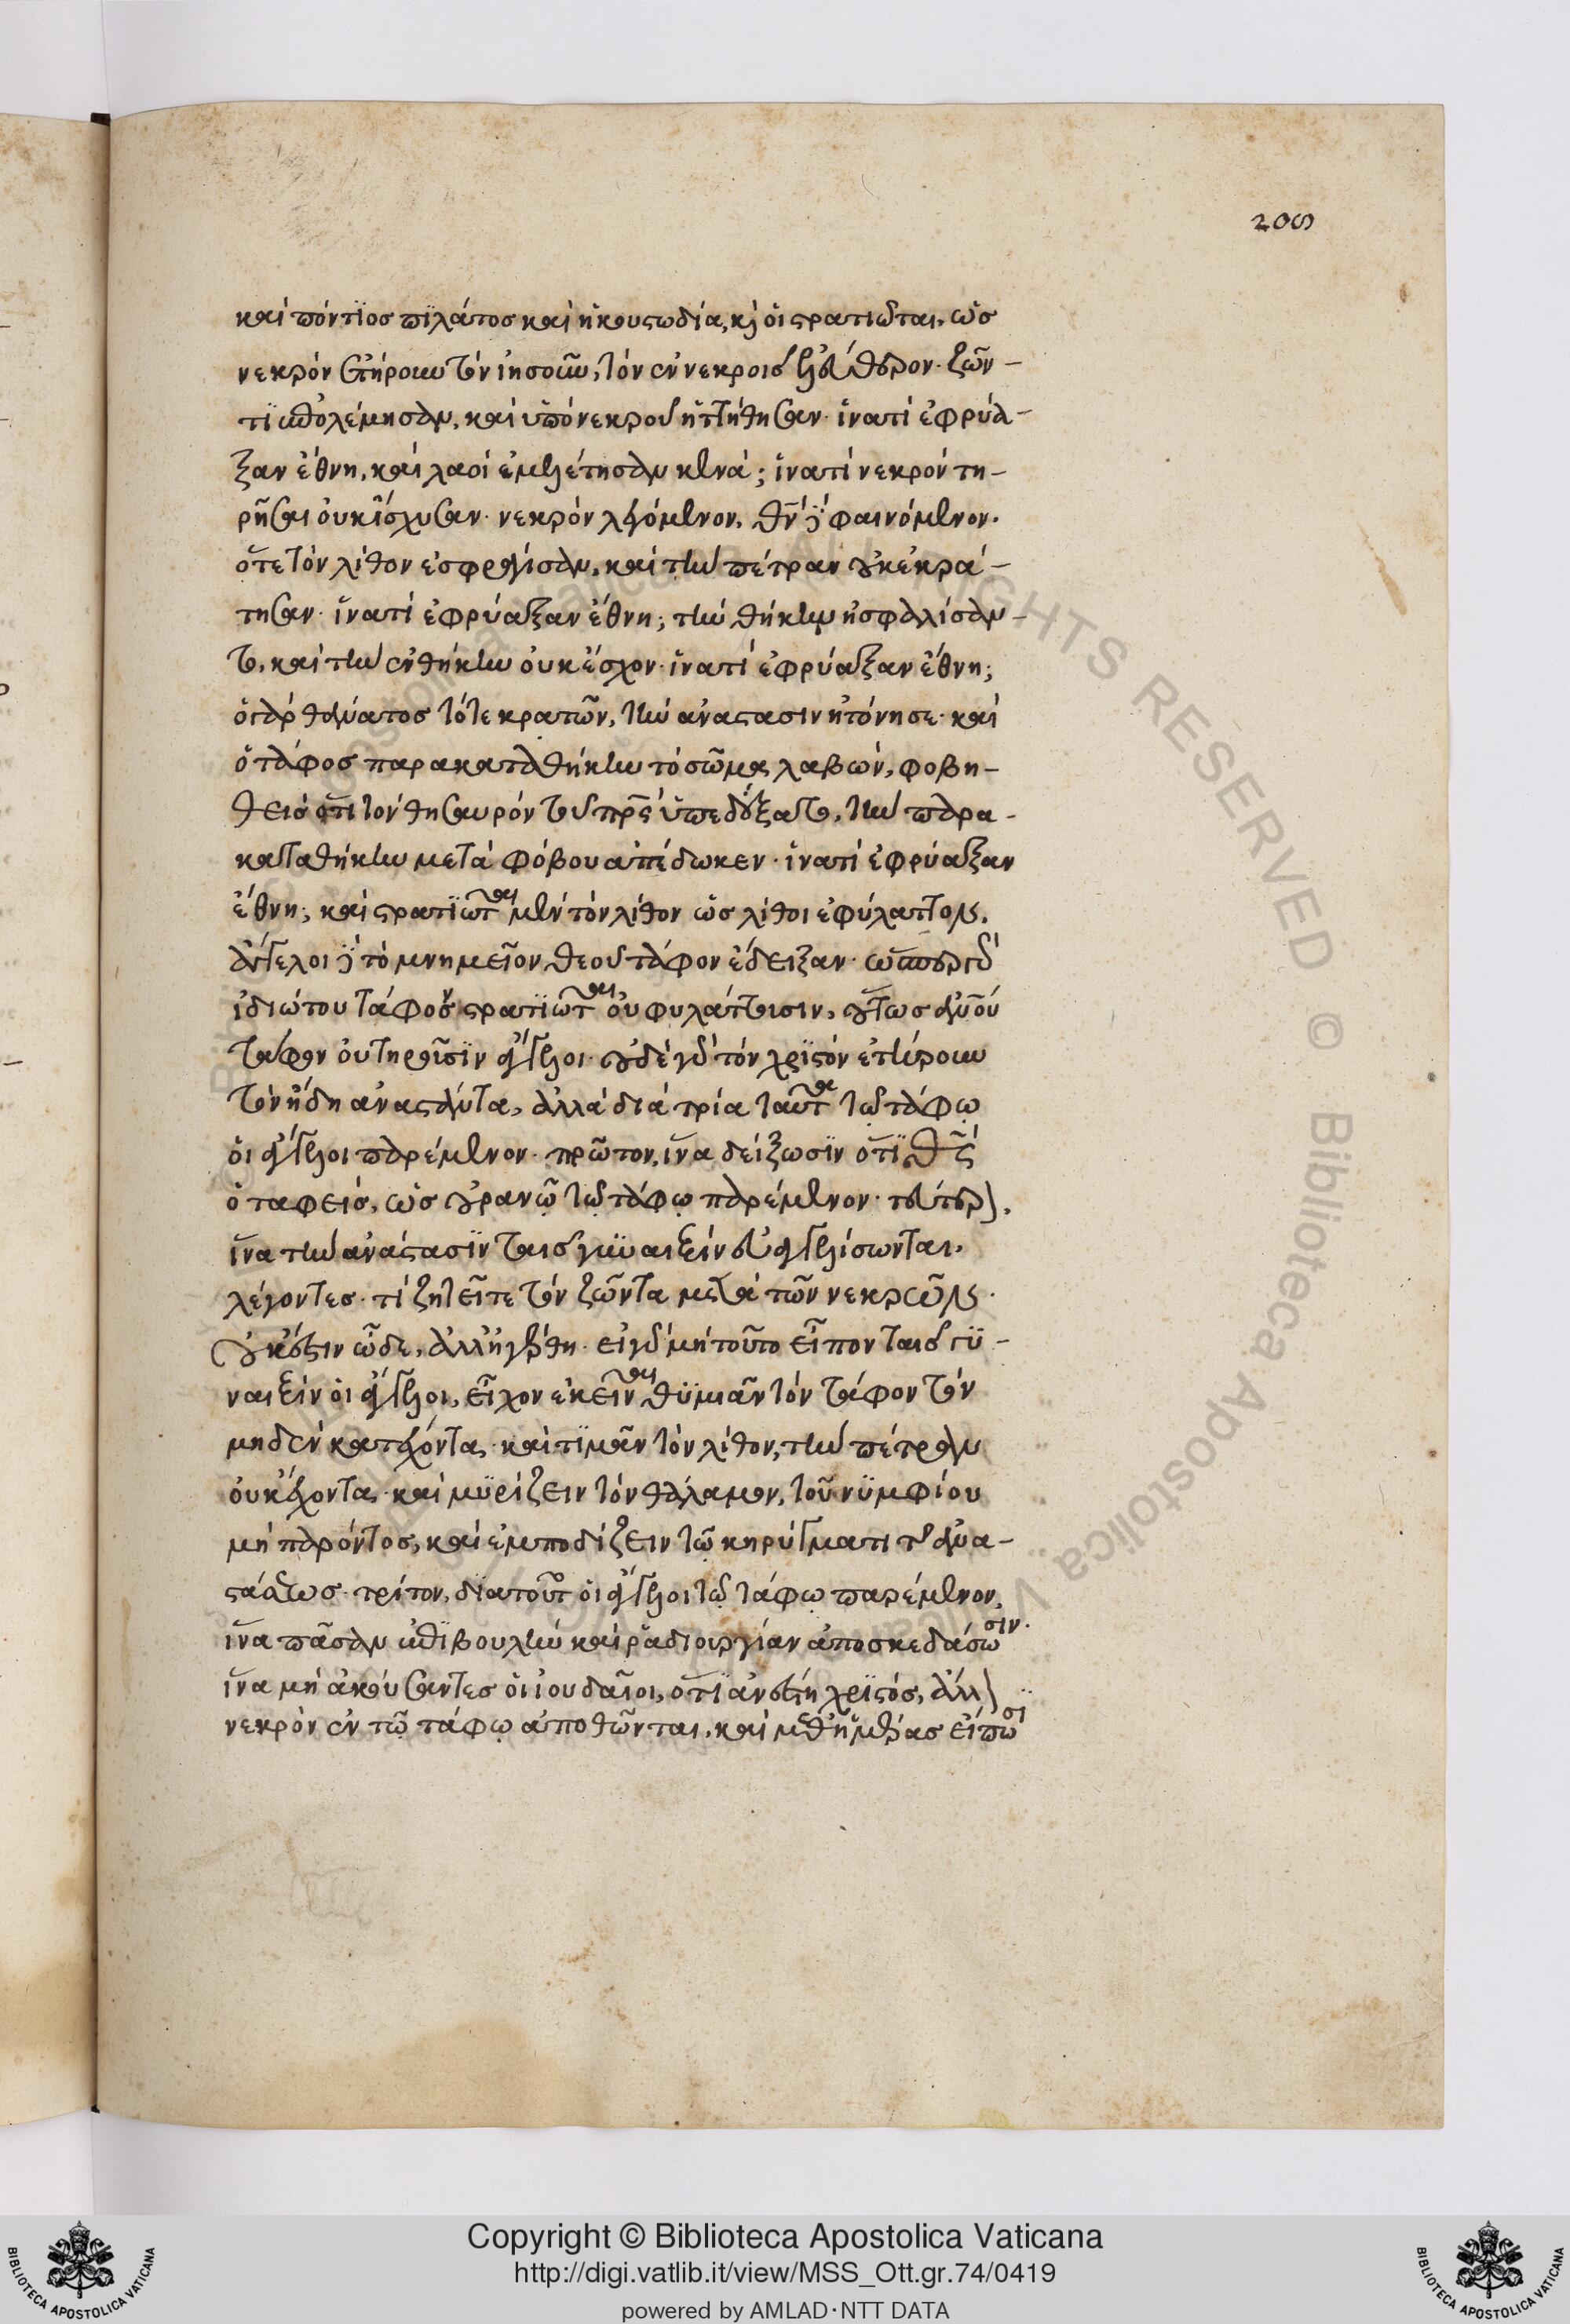 205
καὶ πόντϊος πϊλάτος καὶ ἡ κουστωδία, κὶ οἱ στρατιῶται, ὡς
νεκρὸν ἐτήρουν τὸν ἰησοῦν, τὸν ἐν νεκροῖς ἐλεύθερον· ζῶν-
τϊ ἐπολέμησαν, καὶ ὑπὸ νεκροῦ ἡττήθησαν· ἵνατί ἐφρύα-
ξαν ἔθνη, καὶ λαοὶ ἐμελέτησαν κενά; ἵνατί νεκρὸν τη-
ρῆσαι οὐκ ἴσχυσαν· νεκρὸν λεγόμενον, θν̄ δὲ φαινόμενον.
ὅτε τὸν λίθον ἐσφράγισαν, καὶ τὴν πέτραν οὐκ ἐκρά-
τησαν· ἵνατί ἐφρύαξαν ἔθνη; τὴν θήκην ἠσφαλίσαν-
το, καὶ τὴν ἐνθήκην οὐκ ἔσχον· ἵνατί ἐφρύαξαν ἔθνη;
ὁ γὰρ θάνατος τότε κρατῶν, τὴν ἀνάστασιν ἠτόνησε· καὶ
ὁ τάφος παρακαταθήκην τὸ σῶμα λαβὼν, φοβη-
θεὶς ὅτι τὸν θησαυρὸν τοῦ πρ̄ς ὑπεδέξατο, τὴν παρα-
καταθήκην μετὰ φόβου ἀπέδωκεν· ἵνατί ἐφρύαξαν
ἔθνη; καὶ στρατϊῶται μὲν τὸν λίθον ὡς λίθοι ἐφύλαττον,
ἄγγελοι δὲ τὸ μνημεῖον θεοῦ τάφον ἔδειξαν· ὥσπερ γὰρ
ἰδιώτου τάφον στρατϊῶται οὐ φυλάττουσιν, οὕτως ἀνο̄υ
τάφον οὐ τηροῦσϊν ἄγγελοι· οὐδὲ γὰρ τὸν χρϊστὸν ἐτήρουν
τὸν ἤδη ἀναστάντα, ἀλλὰ διὰ τρία ταῦτα τῷ τάφῳ
οἱ ἄγγελοι παρέμενον· πρῶτον, ἵνα δείξωσϊν ὅτϊ θς̄
ὁ ταφεὶς, ὡς οὐρανῷ τῷ τάφῳ παρέμενον· δεύτερον,
ἵνα τὴν ἀνάστασϊν ταῖς γυναιξὶν εὐαγγελίσωνται,
λέγοντες· τί ζητεῖτε τὸν ζῶντα μετὰ τῶν νεκρῶν·
οὐκ ἔστιν ὧδε, ἀλλ' ἠγέρθη· εἰ γὰρ μὴ τοῦτο εἶπον ταῖς γϋ-
ναιξὶν οἱ ἄγγελοι, εἶχον ἐκεῖναι θϋμιᾶν τὸν τάφον τὸν
μηδὲν κατέχοντα· καὶ τϊμᾶν τὸν λίθον, τὴν πέτραν
οὐκ ἔχοντα· καὶ μϋρίζειν τὸν θάλαμον, τοῦ νϋμφίου
μὴ παρόντος, καὶ ἐμποδίζειν τῷ κηρύγματι τῆς ἀνα-
στάσεως· τρίτον, δϊατοῦτο οἱ ἄγγελοι τῷ τάφῳ παρέμενον,
ἵνα πᾶσαν ἐπϊβουλὴν καὶ ῥαδιουργίαν ἀποσκεδάσωσιν·
ἵνα μὴ ἀκούσαντες οἱ ἰουδαῖοι, ὅτϊ ἀνέστη χρϊστὸς, ἄλλον
νεκρὸν ἐν τῷ τάφῳ ἀποθῶνται, καὶ μεθ' ἡμέρας εἴπωσι
Copyright © Biblioteca Apostolica Vaticana
http://digi.vatlib.it/view/MSS_Ott.gr.74/0419
powered by AMLAD·NTT DATA
BIBLIOTECA APOSTOLICA VATICANA
BIBLIOTECA APOSTOLICA VATICANA